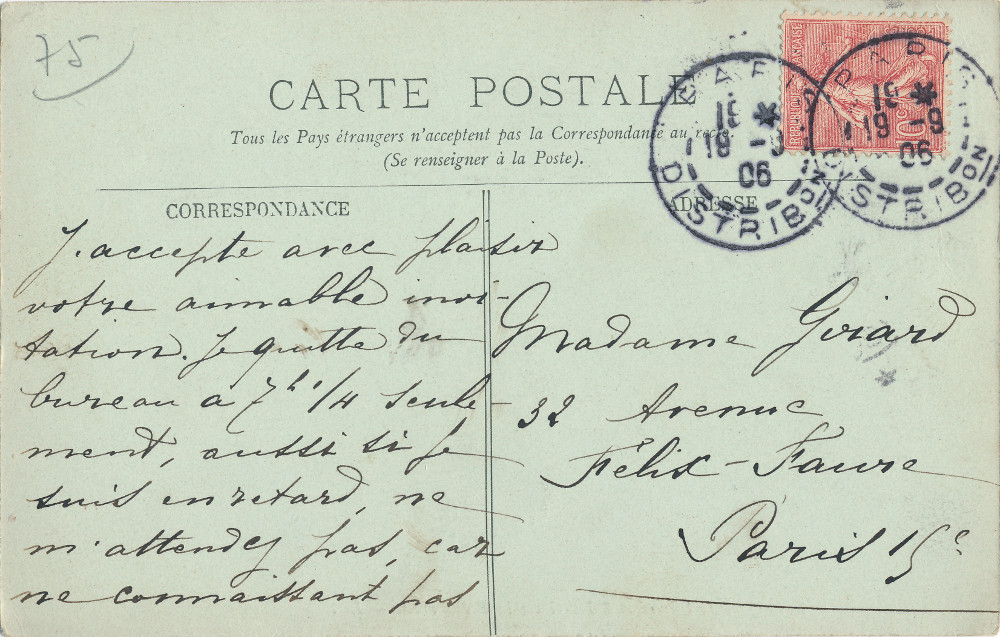 75
CARTE POSTALE
Tous les Pays étrangers n'acceptent pas la Correspondance au recto.
(Se renseigner à la Poste).
RÉPUBLIQUE FRANÇAISE
10c
PARIS
15 *
19 - 9
06
DISTRIBON
PARIS
15 *
19 - 9
06
DISTRIBON
CORRESPONDANCE
ADRESSE
J'accepte avec plaisir
votre aimable invi-
tation. Je quitte du
bureau à 7h 1/4 seule-
ment, aussi si je
suis en retard, ne
m'attendez pas, car
ne connaissant pas
Madame Girard
32 Avenue
Félix-Faure
Paris 15e